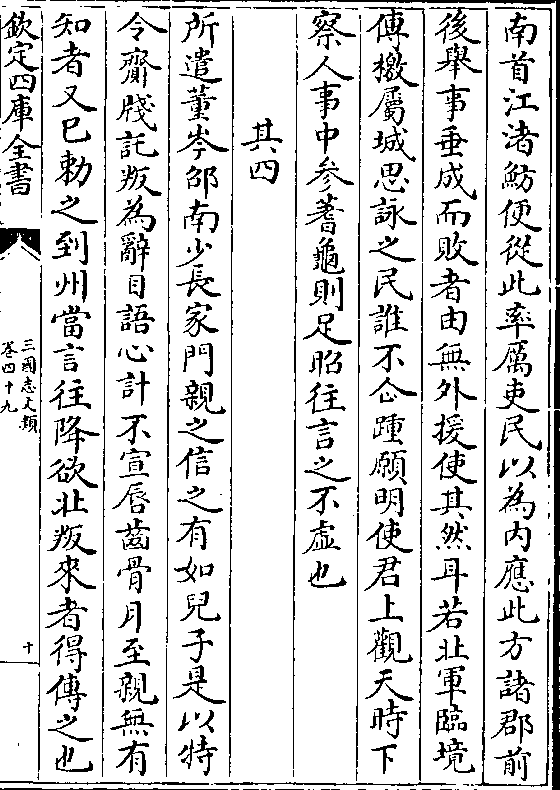 南首江渚魴便從此率厲吏民以為内應此方諸郡前
後舉事垂成而敗者由無外援使其然耳若北軍臨境
傳檄屬城思詠之民誰不企踵願明使君上觀天時下
察人事中參蓍龜則足昭往言之不虛也
其四
所遣董岑邵南少長家門親之信之有如兒子是以特
令齎牋託叛為辭目語心計不宣脣齒骨月至親無有
知者又已勅之到州當言往降欲北叛來者得傳之也
欽定四庫全書
三國志文類
卷四十九
十